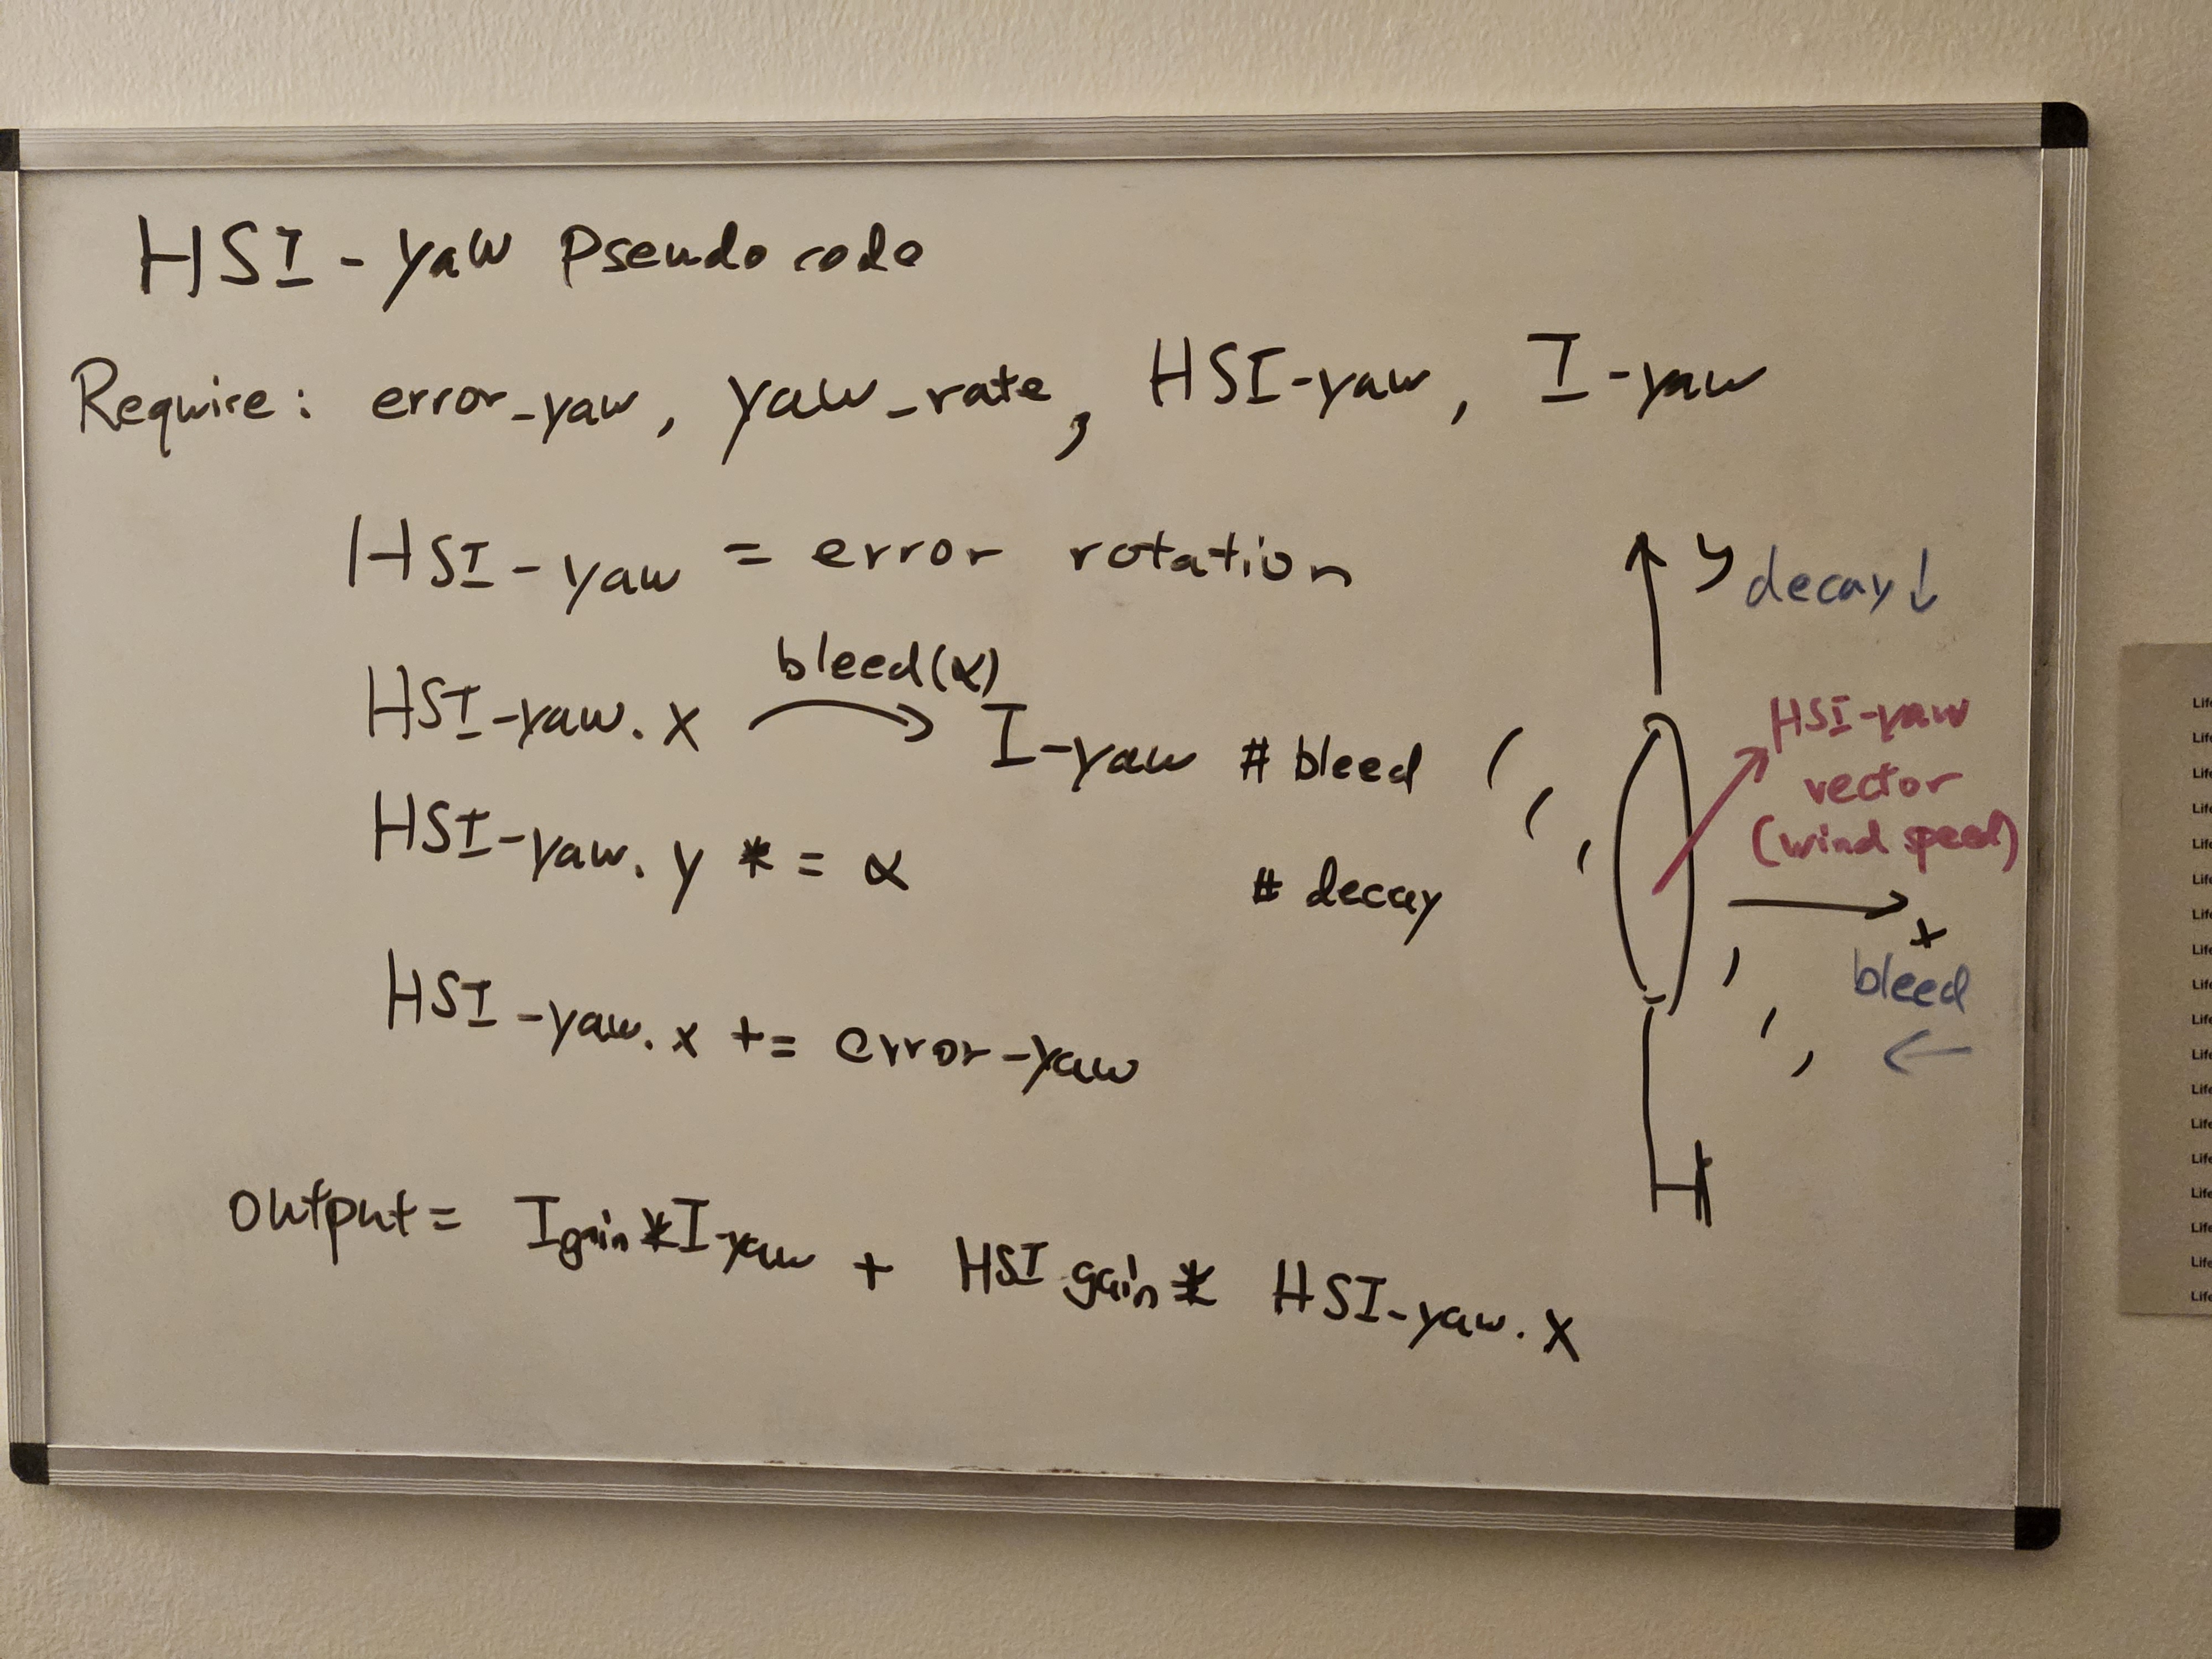 HSI-yaw Pseudo code
Require: error_yaw, yaw_rate, HSI-yaw, I-yaw
HSI-yaw = error rotation
bleed(α)
HSI-yaw.x → I-yaw # bleed
HSI-yaw.y *= α # decay
HSI-yaw.x += error-yaw
output= Igain*I-yaw + HSI gain* HSI-yaw.x
y decay↓
HSI-yaw
vector
(wind speed)
x
bleed
←
Life
Life
Life
Life
Life
Life
Life
Life
Life
Life
Life
Life
Life
Life
Life
Life
Life
Life